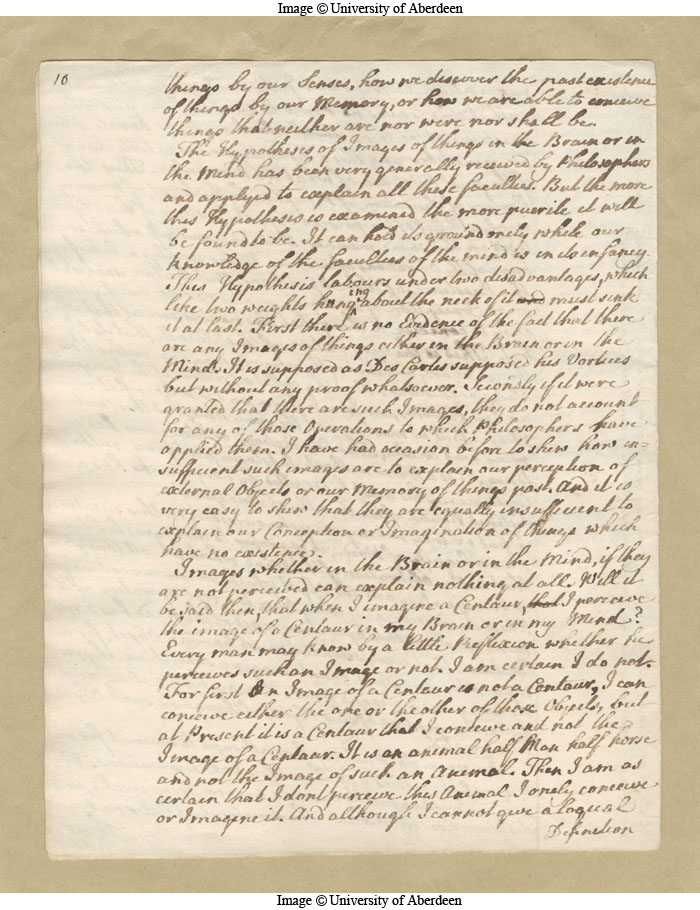 Image © University of Aberdeen
10
things by our Senses, how we discover the past existence
of things by our Memory, or how we are able to conceive
things that neither are nor were nor shall be.
The Hypothesis of Images of things in the Brain or in
the Mind has been very generally received by Philosophers
and applyed to explain all these faculties. But the more
this Hypothesis is examined the more puerile it will
be found to be. It can hold its ground onely while our
knowledge of the faculties of the mind is in its infancy.
This Hypothesis labours under two disadvantages, which
like two weights hanging about the neck of it must sink
it at last. First there is no Evidence of the fact that there
are any Images of things either in the Brain or in the
Mind. It is supposed as Des Cartes supposed his Vortices
but without any proof whatsoever. Secondly if it were
granted that there are such Images, they do not account
for any of those Operations to which Philosophers have
applied them. I have had occasion before to shew how in=
sufficient such images are to explain our perception of
external Objects or our Memory of things past. And it is
very easy to shew that they are equally insufficient to
explain our Conception or Imagination of things which
have no existence.
Images whether in the Brain or in the Mind, if they
are not perceived can explain nothing at all. Will it
be said then, that when I imagine a Centaur, that I perceive
the image of a Centaur in my Brain or in my Mind?
Every man may know by a little Reflexion whether he
perceives such an Image or not. I am certain I do not.
For first An Image of a Centaur is not a Centaur, I can
conceive either the one or the other of those Objects, but
at Present it is a Centaur that I conceive and not the
Image of a Centaur. It is an animal half Man half horse
and not the Image of such an animal. Then I am as
certain that I dont perceive this Animal I onely conceive
or Imagine it. And although I cannot give a logical
Definition
Image © University of Aberdeen